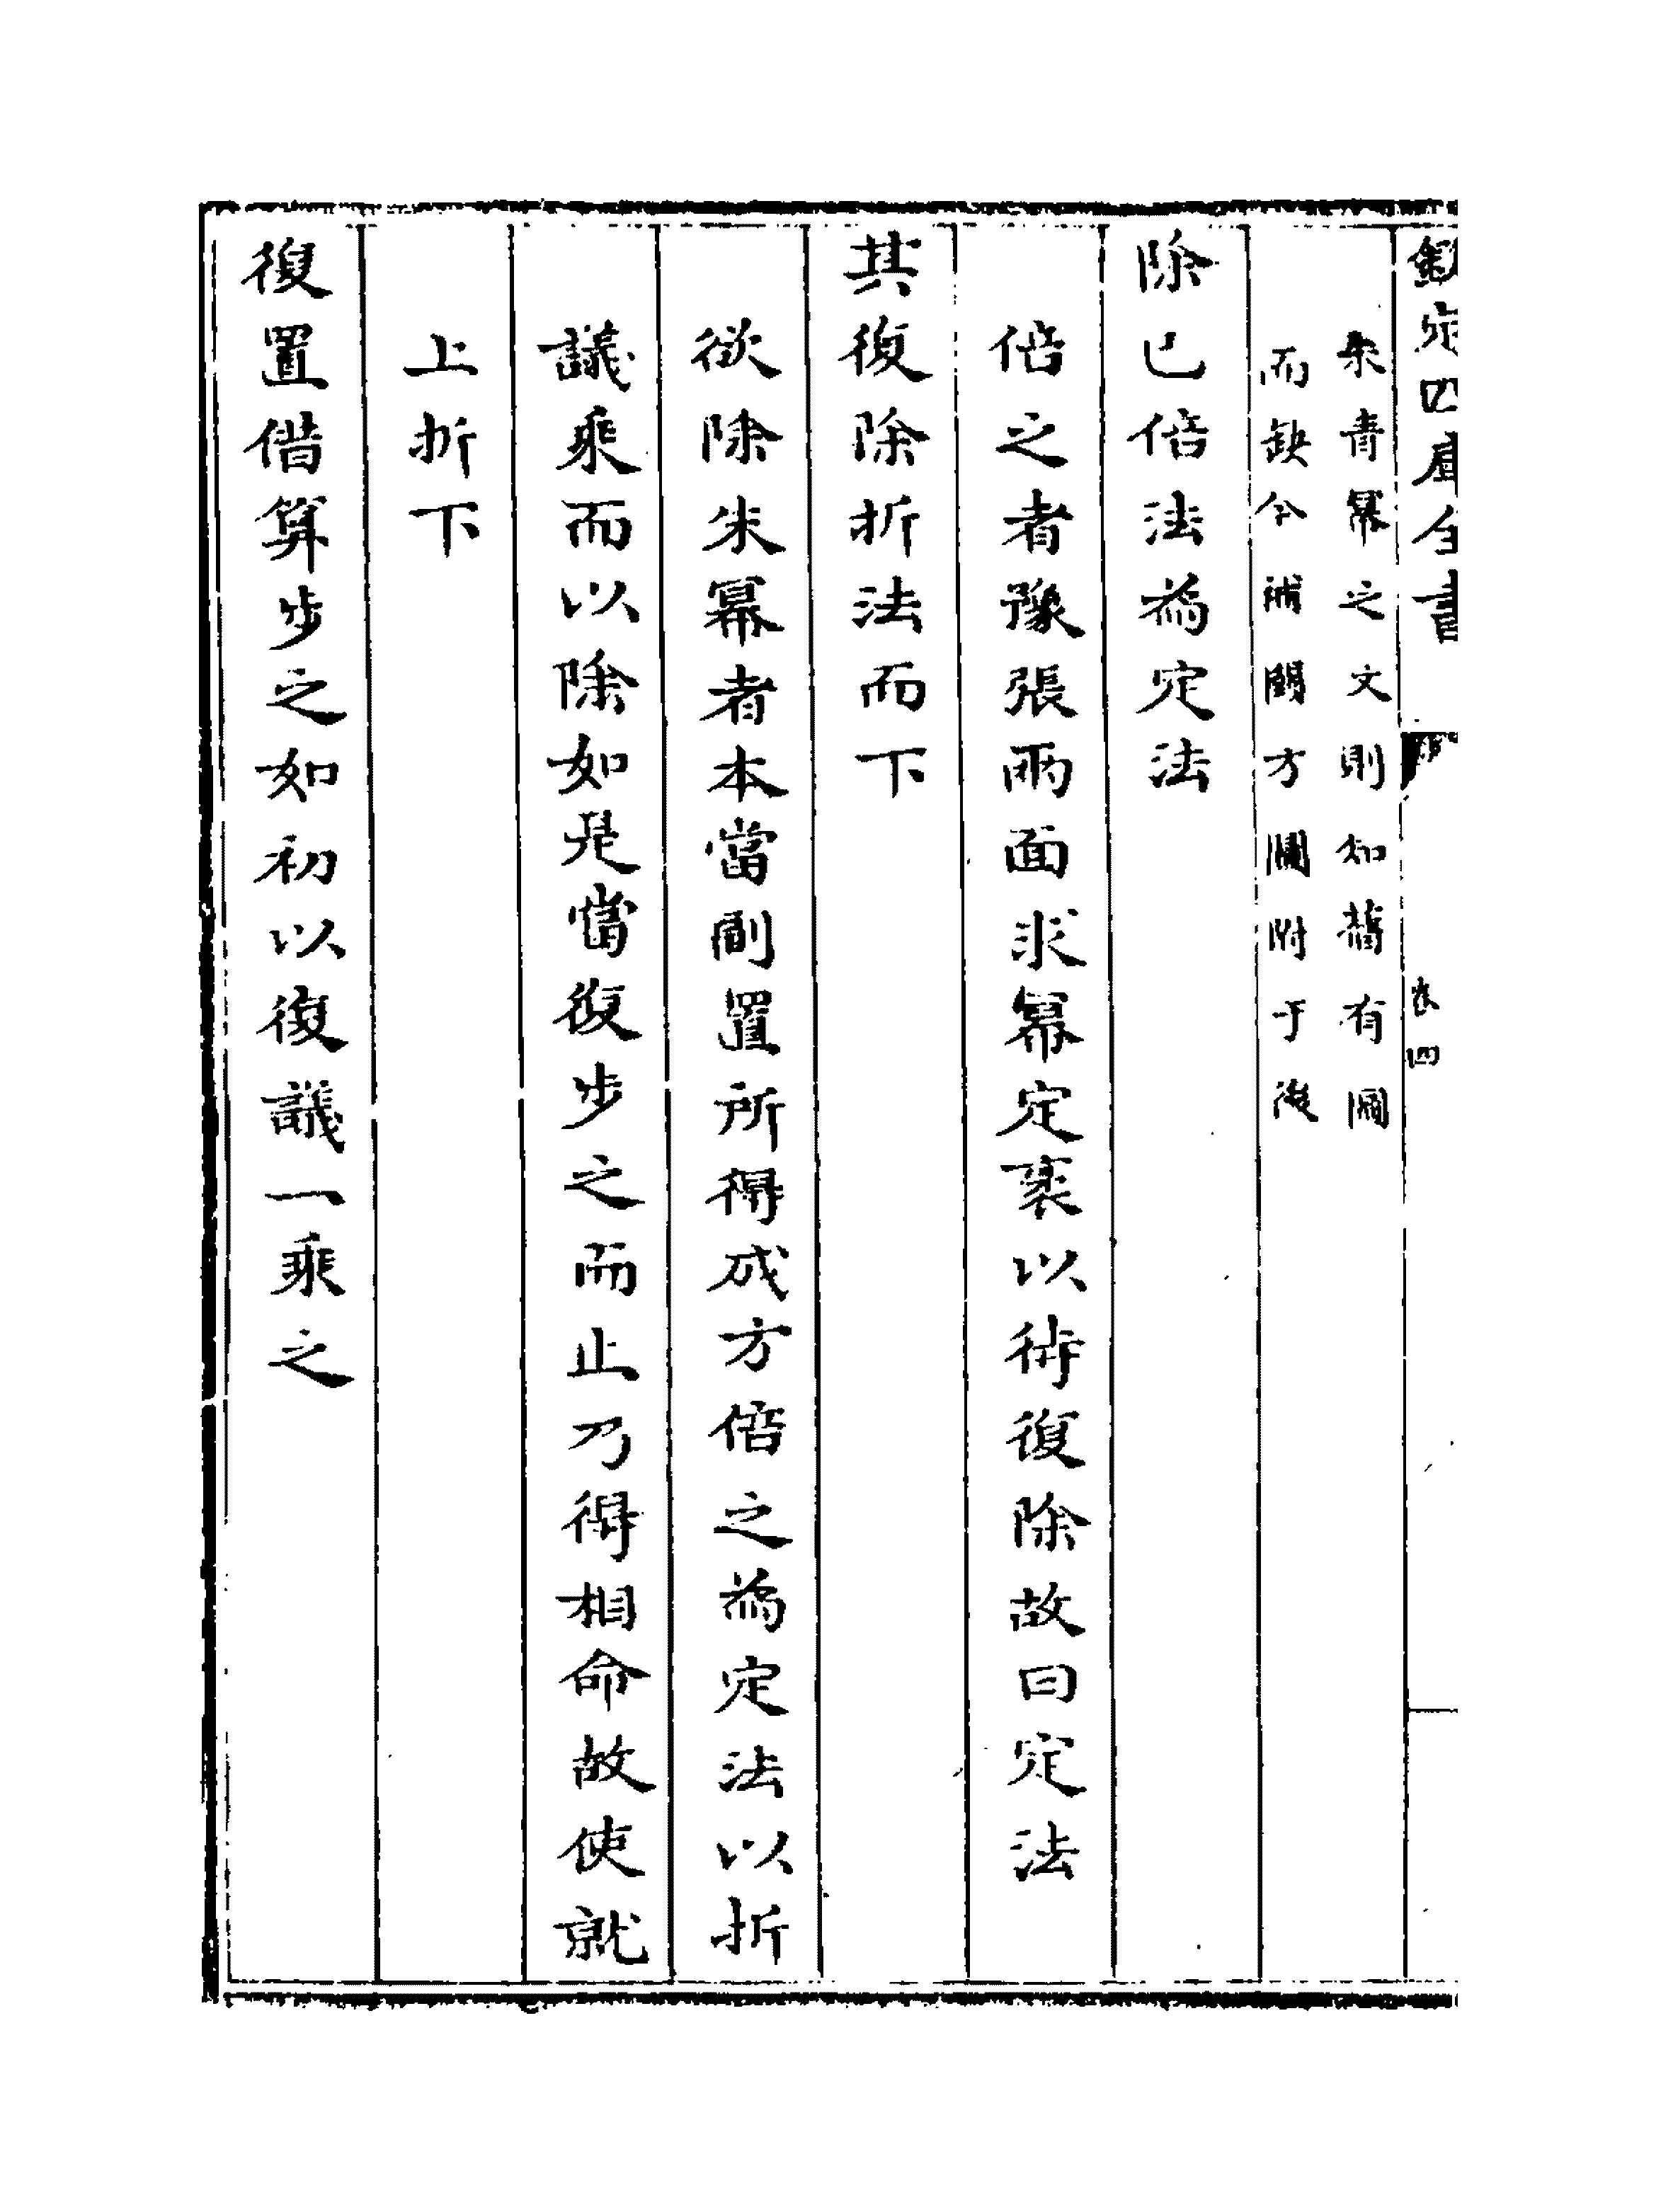 欽定四庫全書
卷四
朱青冪之文則知舊有圖
而缺今補開方圖附于後
除已倍法為定法
倍之者豫張兩面朱冪定袤以待復除故曰定法
其復除折法而下
欲除朱冪者本當副置所得成方倍之為定法以折
議乘而以除如是當復步之而止乃得相命故使就
上折下
復置借算步之如初以復議一乘之